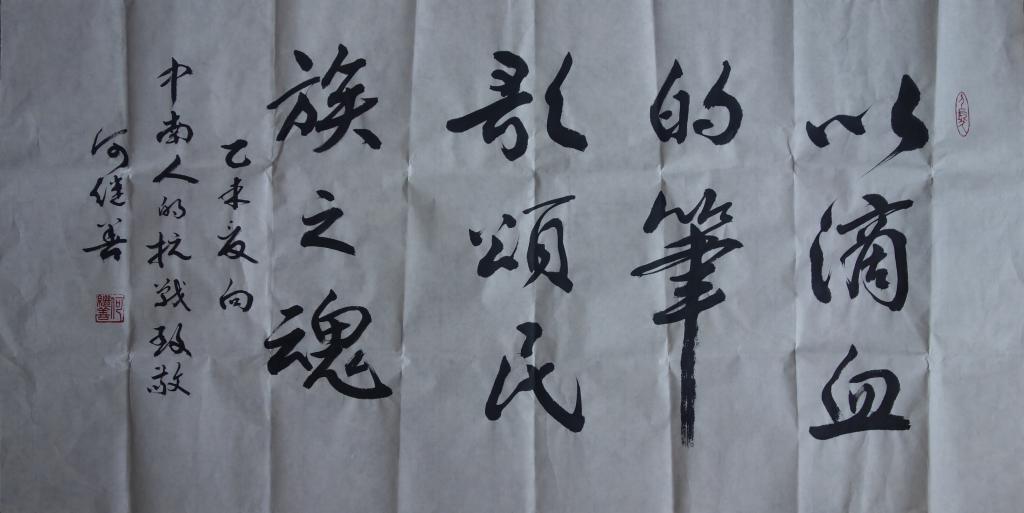 以滴血
的筆
歌頌民
族之魂
乙未夏向
中南人的抗战致敬
何继善
何
繼善